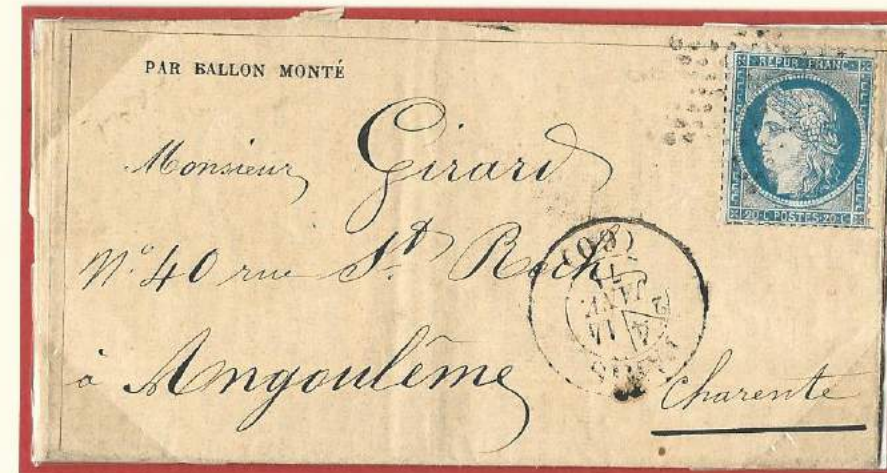 PAR BALLON MONTÉ
REPUB. FRANC.
20 C POSTES 20 C
Monsieur Girard
N.º 40 rue St Roch
à Angoulême
Charente
PARIS
(60)
JANV.
71